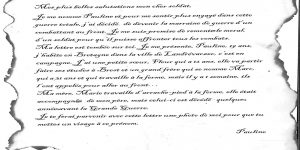 Mes plus belles salutations mon cher soldat.
Je me nomme Pauline et pour me sentir plus engagé dans cette
guerre totale, j'ai décidé de devenir la marraine de guerre d'un
combattant au front. Je me suis promise de remonter le moral
d'un soldat pour qu'il puisse affronter tous les combats.
Ma lettre est tombée sur toi. Je me présente, Pauline, ans,
j'habite en Bretagne dans la ville de Landivisiau, c'est en
campagne. J'ai une petite sœur, Fleur qui a ans, elle va partir
faire ses études à Brest et un grand frère qui se nomme Marc,
qui a 31 ans et qui travaille à la ferme, mais il y a 1 semaine, ils
l'ont appelés pour aller au front...
Ma mère, Marie travaille d'arrache-pied à la ferme, elle était
accompagnée de mon père, mais celui-ci est décédé quelques
années avant la Grande Guerre.
Je te ferai parvenir avec cette lettre une photo de moi pour que tu
mettes un visage à ce prénom.
Pauline